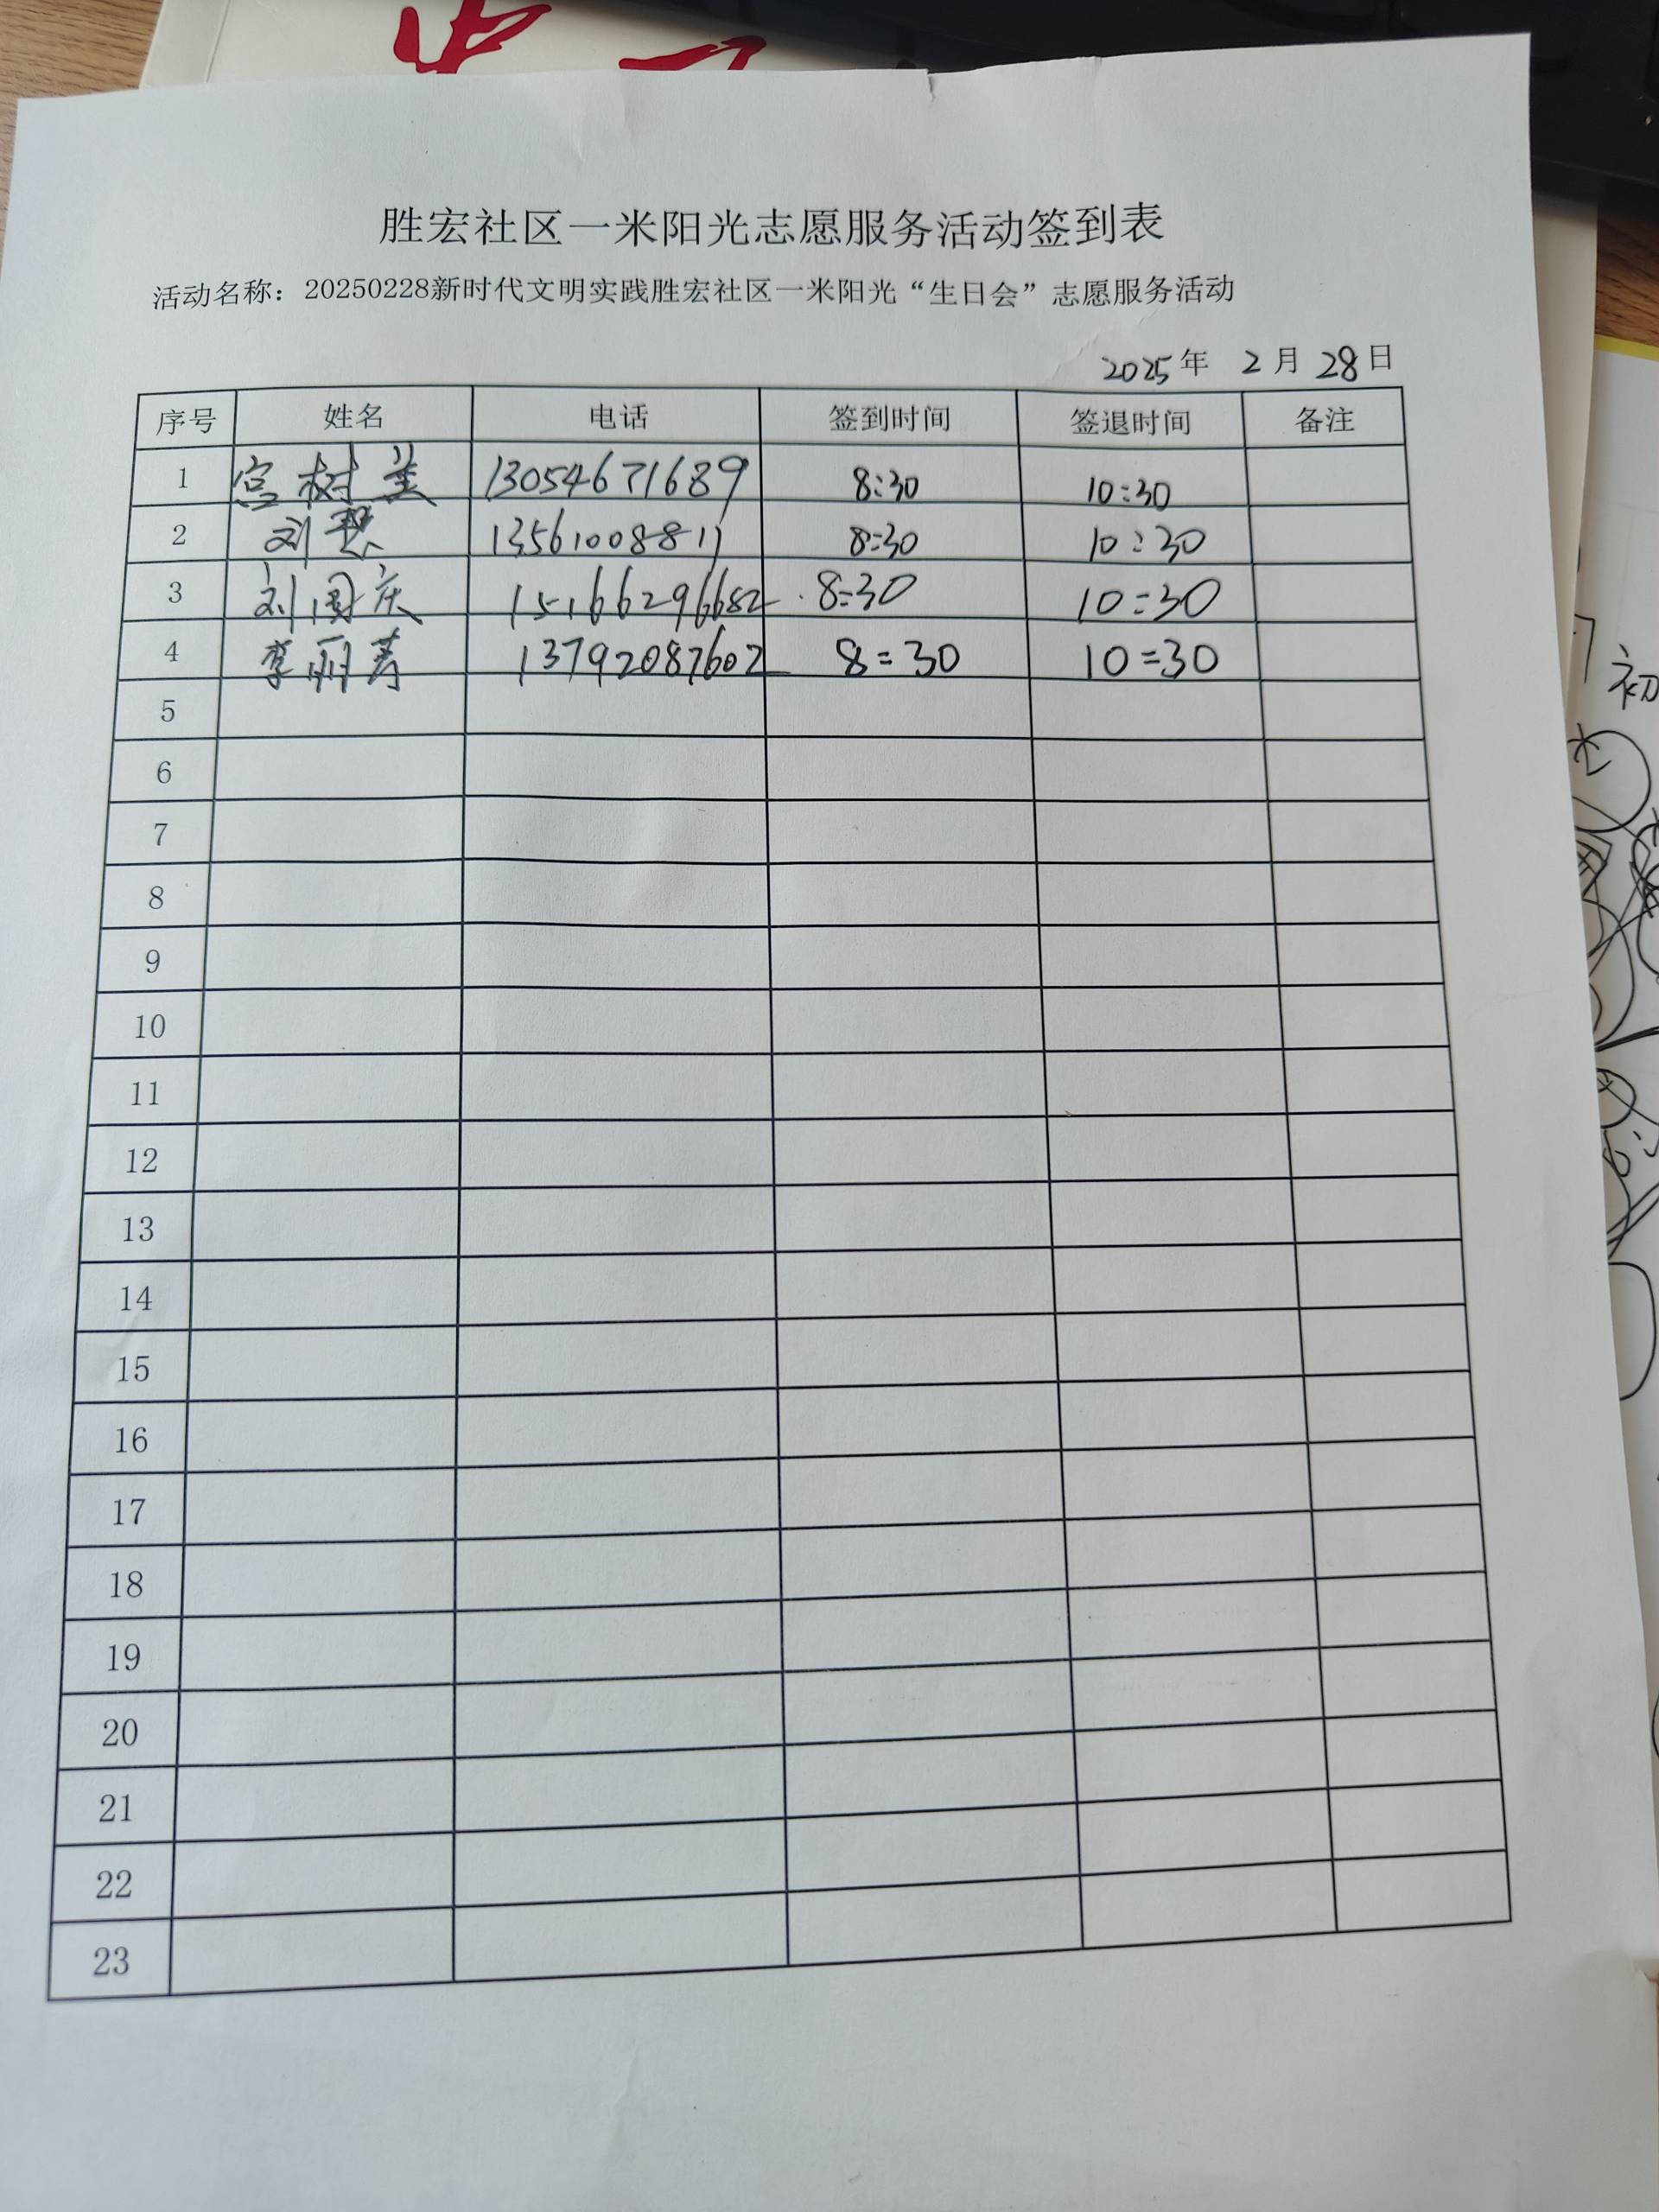 胜宏社区一米阳光志愿服务活动签到表
活动名称：20250228新时代文明实践胜宏社区一米阳光“生日会”志愿服务活动
2025年 2月 28日
序号 姓名 电话 签到时间 签退时间 备注
1 宫树 13054671689 8:30 10:30
2 刘 13561008811 8:30 10:30
3 刘国庆 15166296682 8:30 10:30
4 李丽 13792087602 8:30 10:30
5
6
7
8
9
10
11
12
13
14
15
16
17
18
19
20
21
22
23
初